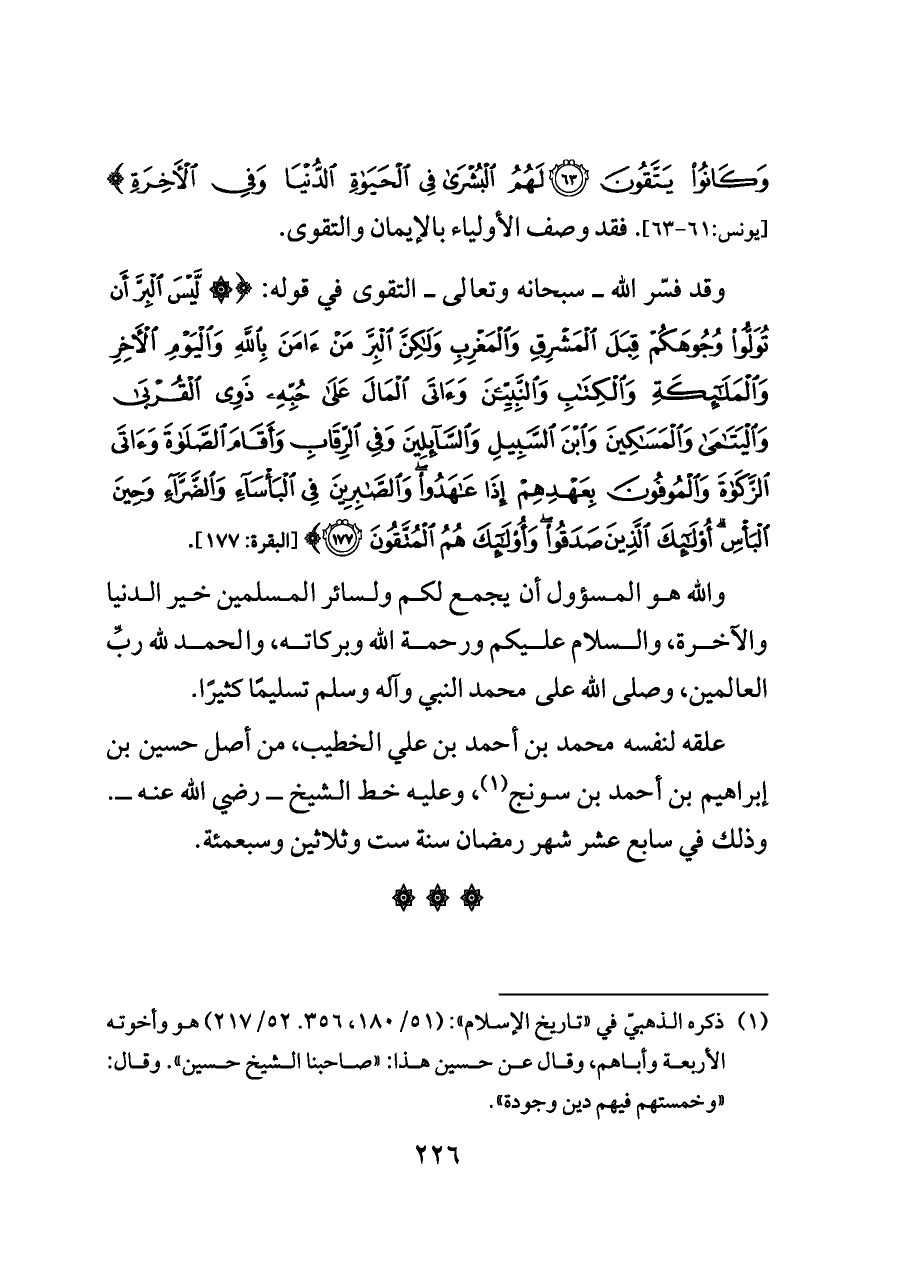 وَكَانُوا۟ يَتَّقُونَ ﴿٦٣﴾ لَهُمُ ٱلْبُشْرَىٰ فِى ٱلْحَيَوٰةِ ٱلدُّنْيَا وَفِى ٱلْـَٔاخِرَةِ ﴾
[يونس:٦١-٦٣]. فقد وصف الأولياء بالإيمان والتقوى.
وقد فسّر الله ــ سبحانه وتعالى ــ التقوى في قوله: ﴿ ۞ لَّيْسَ ٱلْبِرَّ أَن
تُوَلُّوا۟ وُجُوهَكُمْ قِبَلَ ٱلْمَشْرِقِ وَٱلْمَغْرِبِ وَلَـٰكِنَّ ٱلْبِرَّ مَنْ ءَامَنَ بِٱللَّهِ وَٱلْيَوْمِ ٱلْـَٔاخِرِ
وَٱلْمَلَـٰٓئِكَةِ وَٱلْكِتَـٰبِ وَٱلنَّبِيِّـۧنَ وَءَاتَى ٱلْمَالَ عَلَىٰ حُبِّهِۦ ذَوِى ٱلْقُرْبَىٰ
وَٱلْيَتَـٰمَىٰ وَٱلْمَسَـٰكِينَ وَٱبْنَ ٱلسَّبِيلِ وَٱلسَّآئِلِينَ وَفِى ٱلرِّقَابِ وَأَقَامَ ٱلصَّلَوٰةَ وَءَاتَى
ٱلزَّكَوٰةَ وَٱلْمُوفُونَ بِعَهْدِهِمْ إِذَا عَـٰهَدُوا۟ ۖ وَٱلصَّـٰبِرِينَ فِى ٱلْبَأْسَآءِ وَٱلضَّرَّآءِ وَحِينَ
ٱلْبَأْسِ ۗ أُو۟لَـٰٓئِكَ ٱلَّذِينَ صَدَقُوا۟ ۖ وَأُو۟لَـٰٓئِكَ هُمُ ٱلْمُتَّقُونَ ﴿١٧٧﴾ ﴾ [البقرة: ١٧٧].
والله هو المسؤول أن يجمع لكم ولسائر المسلمين خير الدنيا
والآخرة، والسلام عليكم ورحمة الله وبركاته، والحمد لله ربِّ
العالمين، وصلى الله على محمد النبي وآله وسلم تسليمًا كثيرًا.
علقه لنفسه محمد بن أحمد بن علي الخطيب، من أصل حسين بن
إبراهيم بن أحمد بن سونج(١)، وعليه خط الشيخ ــ رضي الله عنه ــ.
وذلك في سابع عشر شهر رمضان سنة ست وثلاثين وسبعمئة.
۞ ۞ ۞
(١) ذكره الذهبيّ في «تاريخ الإسلام»: (٥١/ ١٨٠، ٣٥٦. ٥٢/ ٢١٧) هو وأخوته
الأربعة وأباهم، وقال عن حسين هذا: «صاحبنا الشيخ حسين». وقال:
«وخمستهم فيهم دين وجودة».
٢٢٦